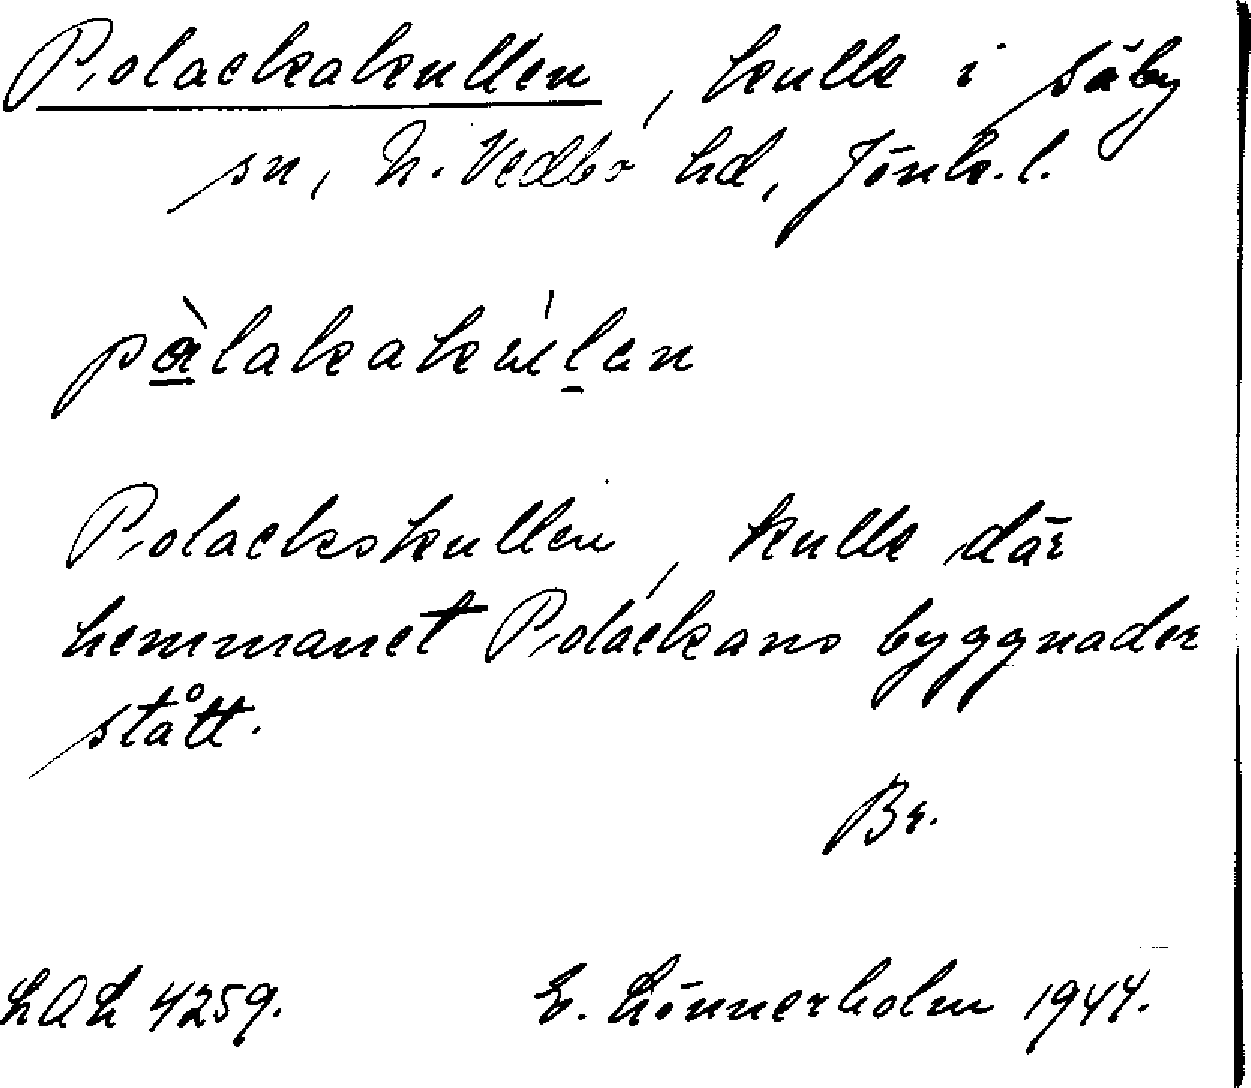 Polackakullen, kulle i Säby
sn, N. Vedbo hd, Jönk. l.
pàlakakúlen
Polackskullen, kulle där
hemmanet Polackans byggnader
stått.
Br.
LAL 4259. E. Lönnerholm 1944.